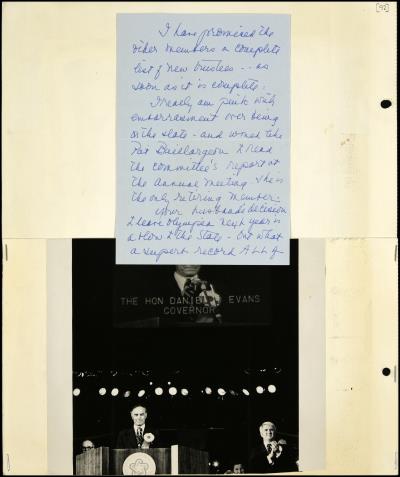 [92]
I have promised the
other members a complete
list of new trustees -- as
soon as it is complete.
I really am pink with
embarrassment over being
on the slate - and would like
Pat Baillargeon to read
the committee's report at
the annual meeting. She is
the only retiring member.
Your husband's decision
to leave Olympia next year is
a blow to the State - but what
a superb record ALL of
THE HON DANIEL EVANS
GOVERNOR